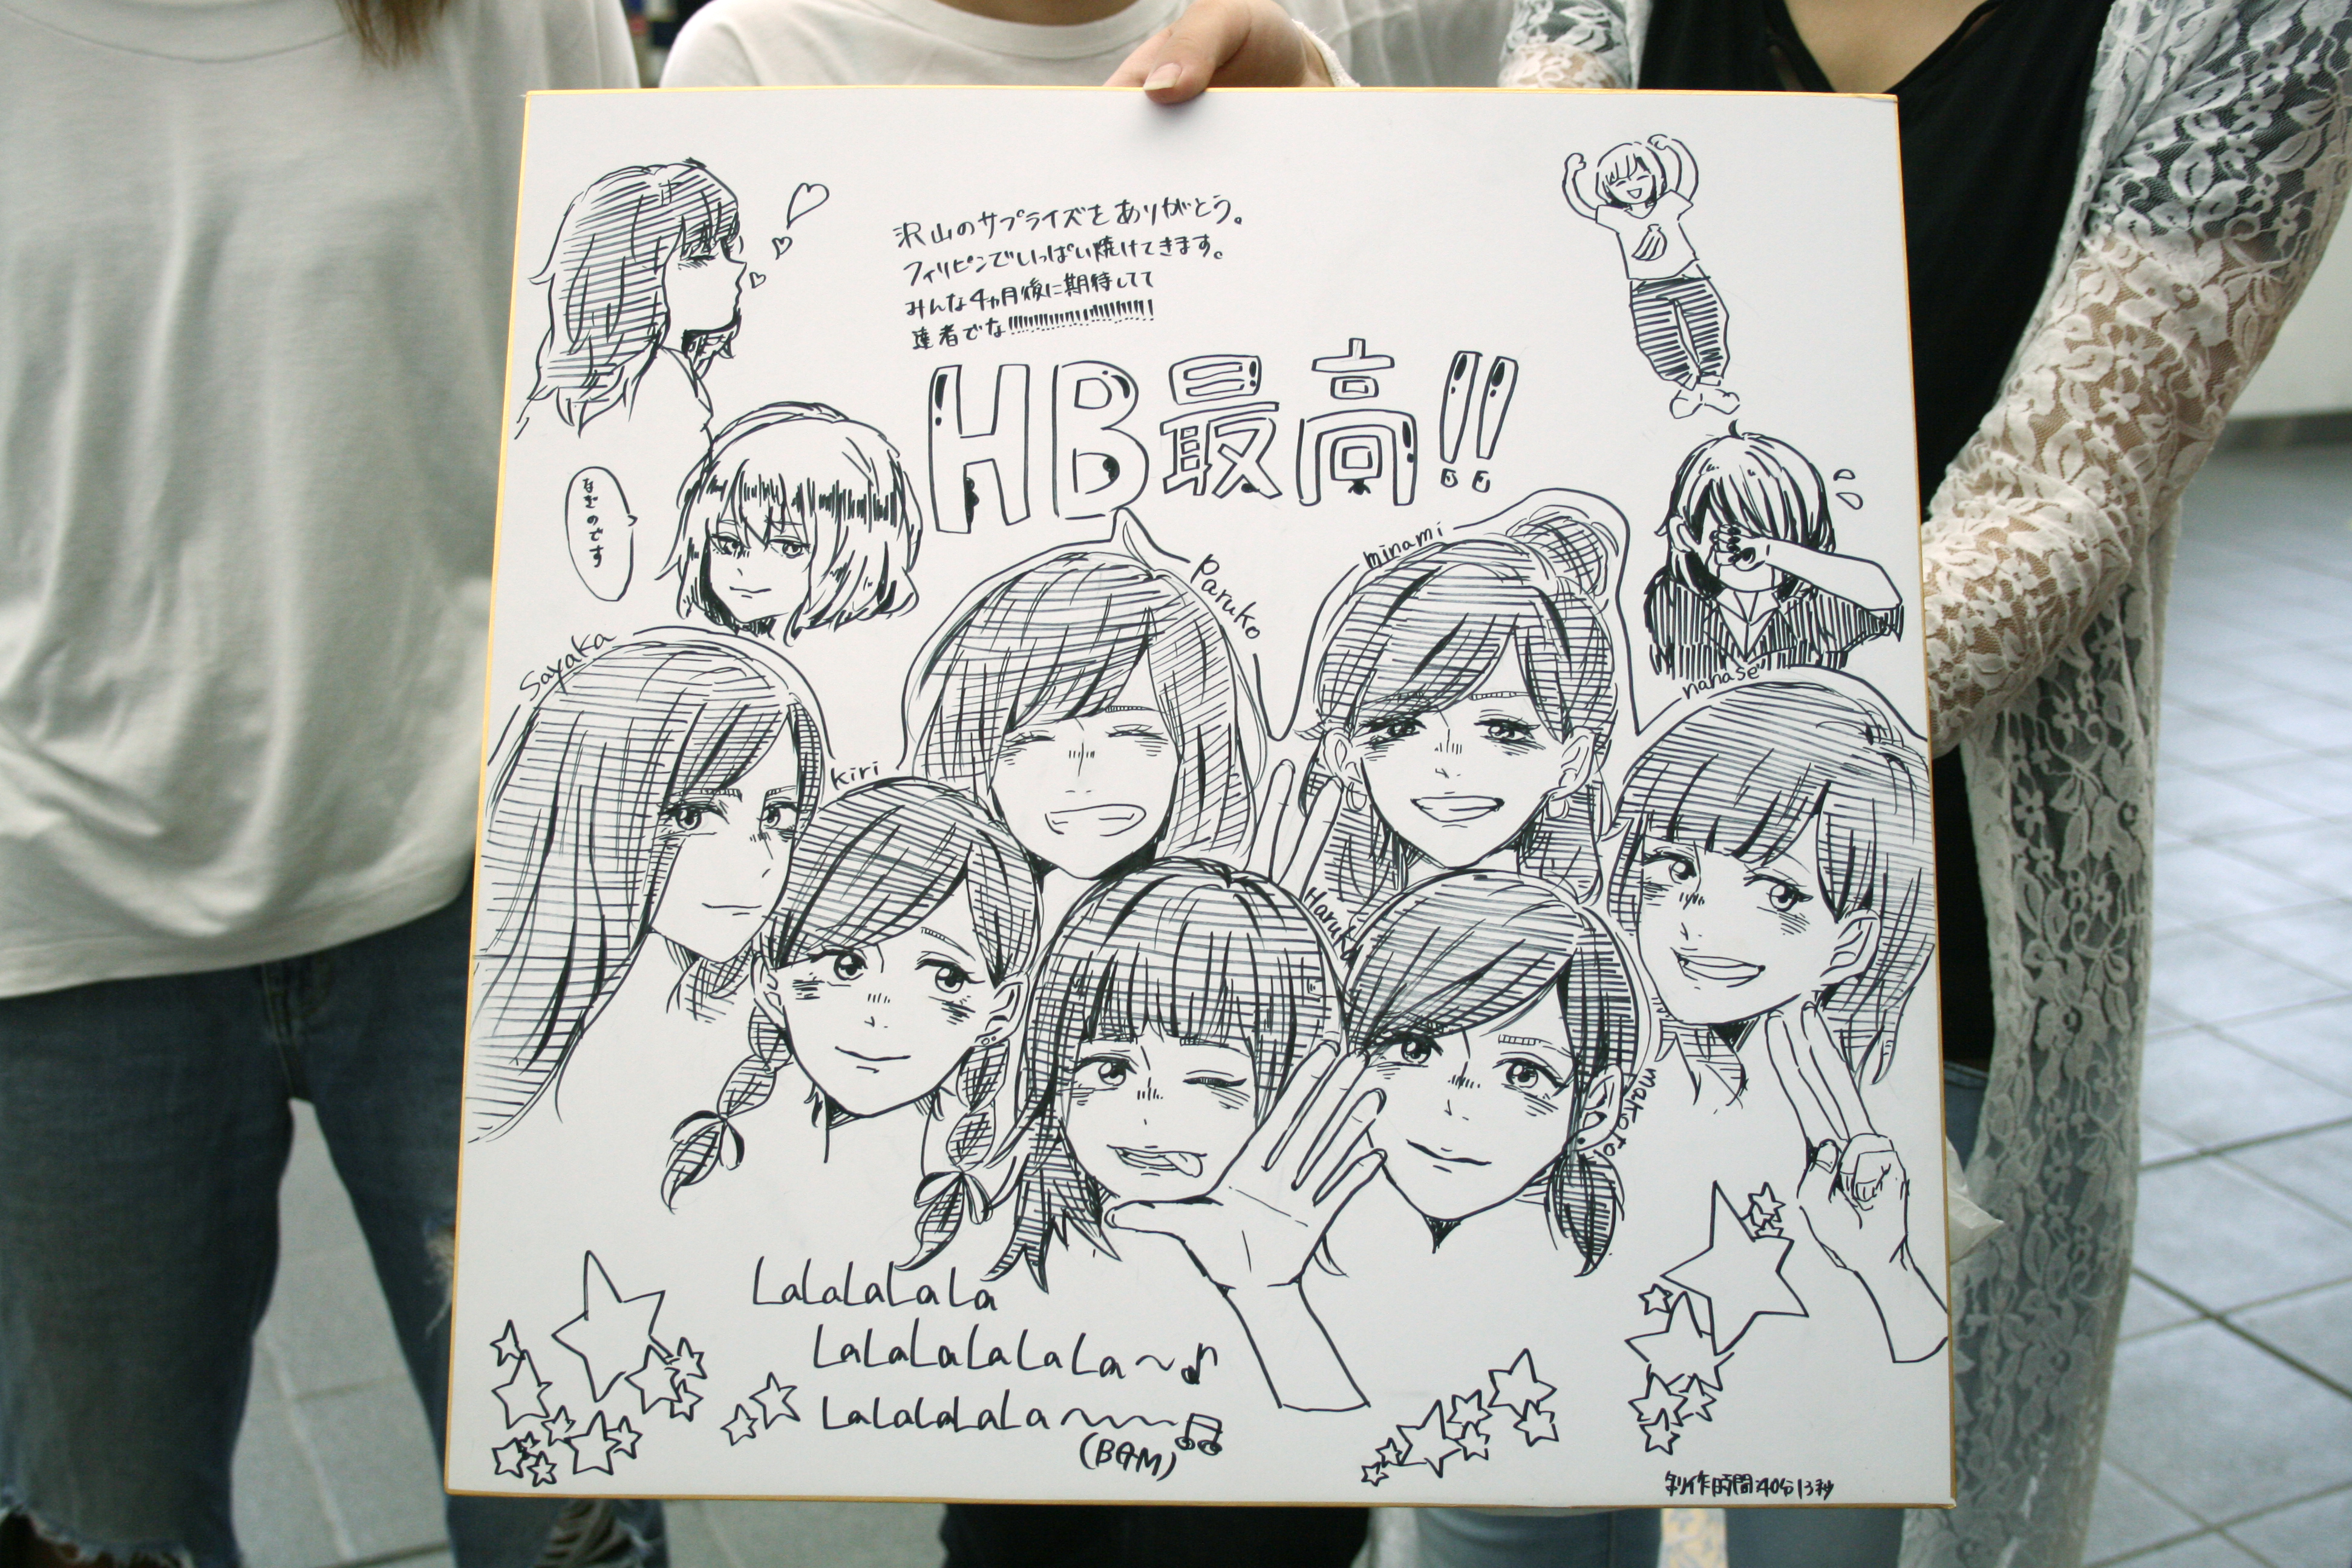 沢山のサプライズをありがとう。
フィリピンでいっぱい焼けてきます。
みんな4ヵ月後に期待してて
達者でな!!!!!!!!!!!!!!!!!!!!!!!!
HB最高!!
なぎのです
Sayaka
kiri
Paruko
minami
nanase
Haruka
makoto
LaLaLaLaLa
LaLaLaLaLaLaLa〜♪
LaLaLaLaLaLa〜〜〜♫
(BGM)
制作時間:40分13秒